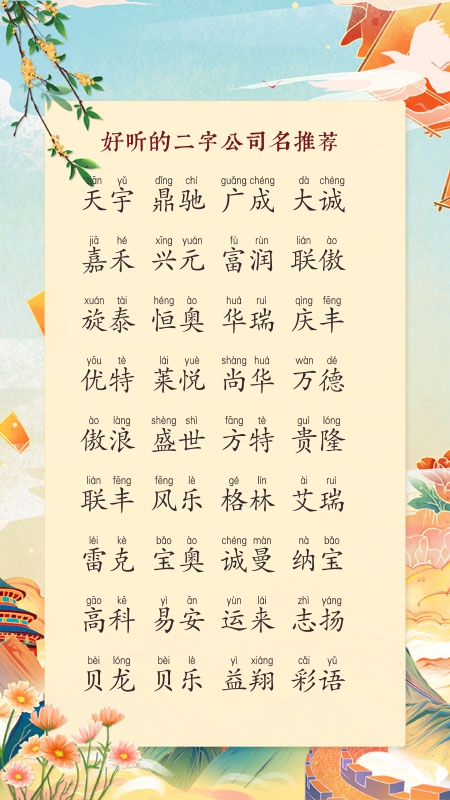 好听的二字公司名推荐
tiān yǔ dǐng chí guǎng chéng dà chéng
天宇 鼎驰 广成 大诚
jiā hé xīng yuán fù rùn lián ào
嘉禾 兴元 富润 联傲
xuán tài héng ào huá ruì qìng fēng
旋泰 恒奥 华瑞 庆丰
yōu tè lái yuè shàng huá wàn dé
优特 莱悦 尚华 万德
ào làng shèng shì fāng tè guì lóng
傲浪 盛世 方特 贵隆
lián fēng fēng lè gé lín ài ruì
联丰 风乐 格林 艾瑞
léi kè bǎo ào chéng màn nà bǎo
雷克 宝奥 诚曼 纳宝
gāo kē yì ān yùn lái zhì yáng
高科 易安 运来 志扬
bèi lóng bèi lè yì xiáng cǎi yǔ
贝龙 贝乐 益翔 彩语